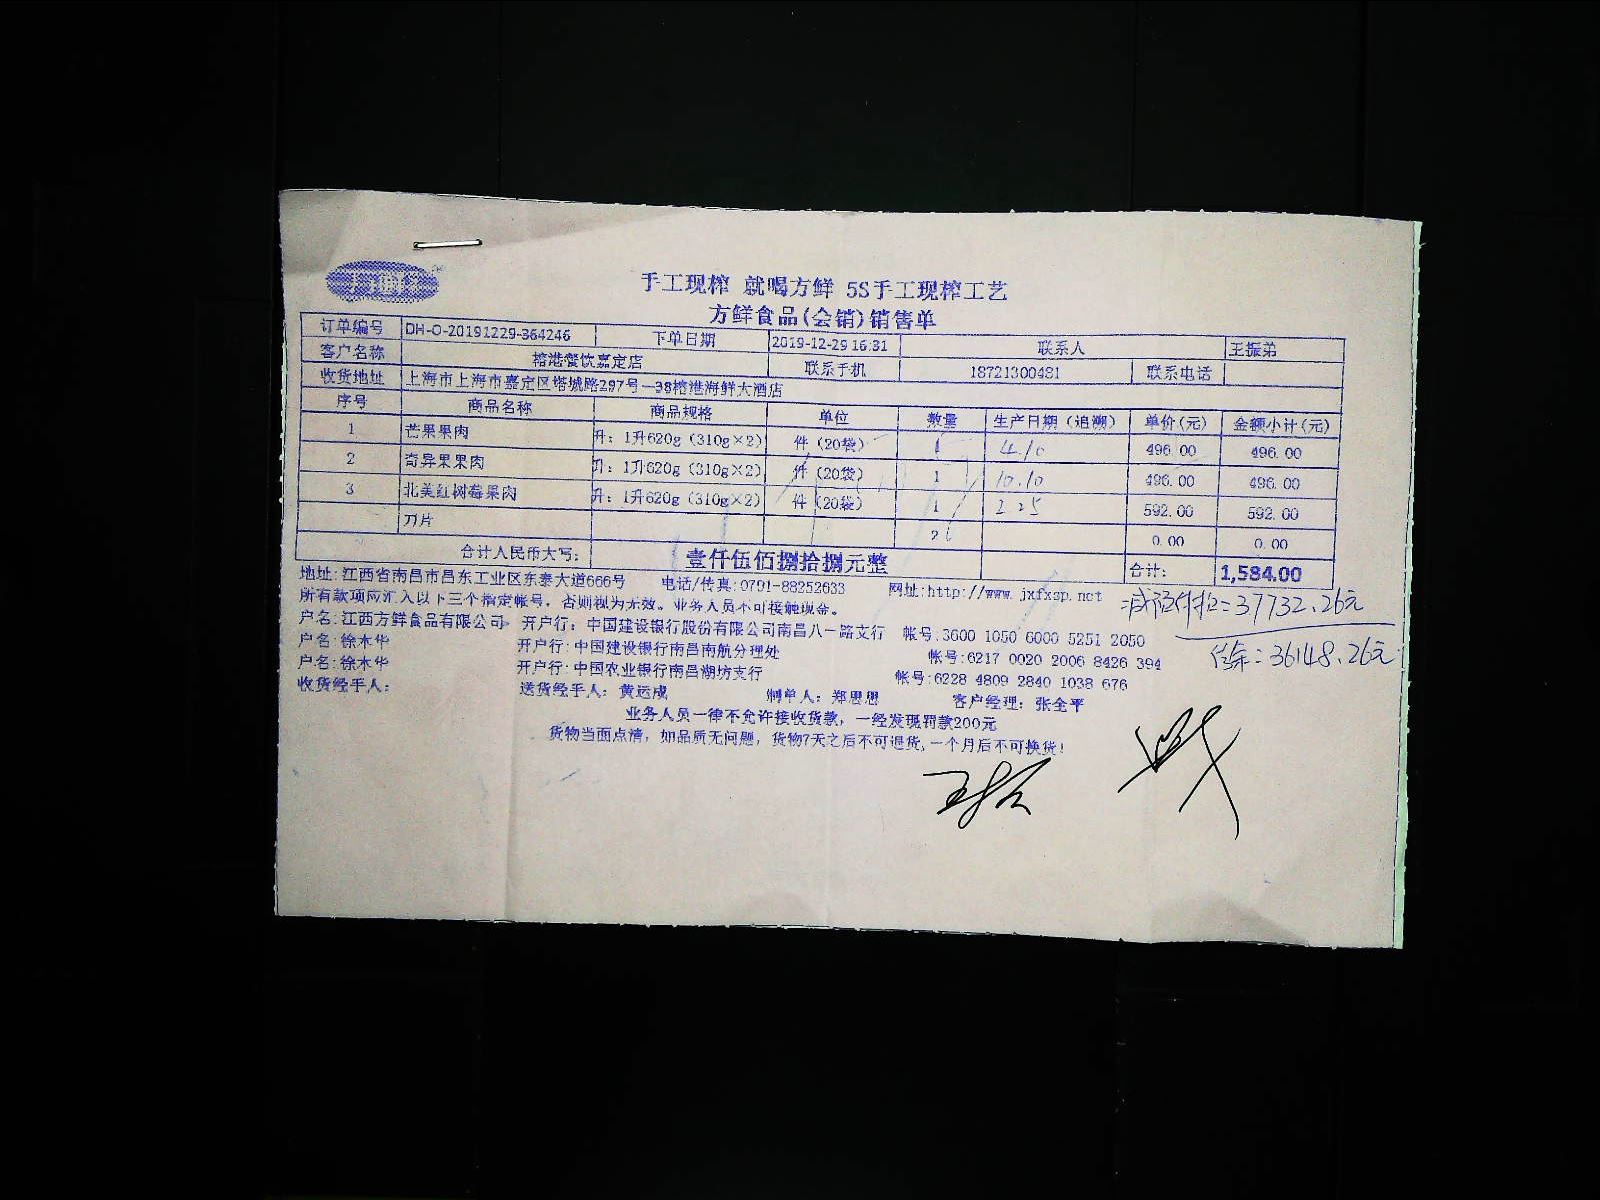 手工现榨 就喝方鲜 5S手工现榨工艺
方鲜食品(会销)销售单
订单编号 DH-O-20191229-364246 下单日期 2019-12-29 16:31 联系人 王振弟
客户名称 榕港餐饮嘉定店 联系手机 18721300481 联系电话
收货地址 上海市上海市嘉定区塔城路297号-38榕港海鲜大酒店
序号 商品名称 商品规格 单位 数量 生产日期（追溯） 单价(元) 金额小计(元)
1 芒果果肉 升：1升620g（310g×2） 件（20袋） 1 4.10 496.00 496.00
2 奇异果果肉 升：1升620g（310g×2） 件（20袋） 1 10.10 496.00 496.00
3 北美红树莓果肉 升：1升620g（310g×2） 件（20袋） 1 2.25 592.00 592.00
刀片 2 0.00 0.00
合计人民币大写： 壹仟伍佰捌拾捌元整 合计： 1,584.00
地址：江西省南昌市昌东工业区东泰大道666号 电话/传真:0791-88252633 网址:http://www.jxfxsp.net
所有款项应汇入以下三个指定帐号，否则视为无效。业务人员不可接触现金。
=37732.26元
户名：江西方鲜食品有限公司 开户行：中国建设银行股份有限公司南昌八一路支行 帐号:3600 1050 6000 5251 2050
余：36148.26元
户名：徐木华 开户行：中国建设银行南昌南航分理处 帐号:6217 0020 2006 8426 394
户名：徐木华 开户行：中国农业银行南昌湖坊支行 帐号:6228 4809 2840 1038 676
收货经手人： 送货经手人：黄运成 制单人：郑思思 客户经理：张全平
业务人员一律不允许接收货款，一经发现罚款200元
货物当面点清，如品质无问题，货物7天之后不可退货,一个月后不可换货！